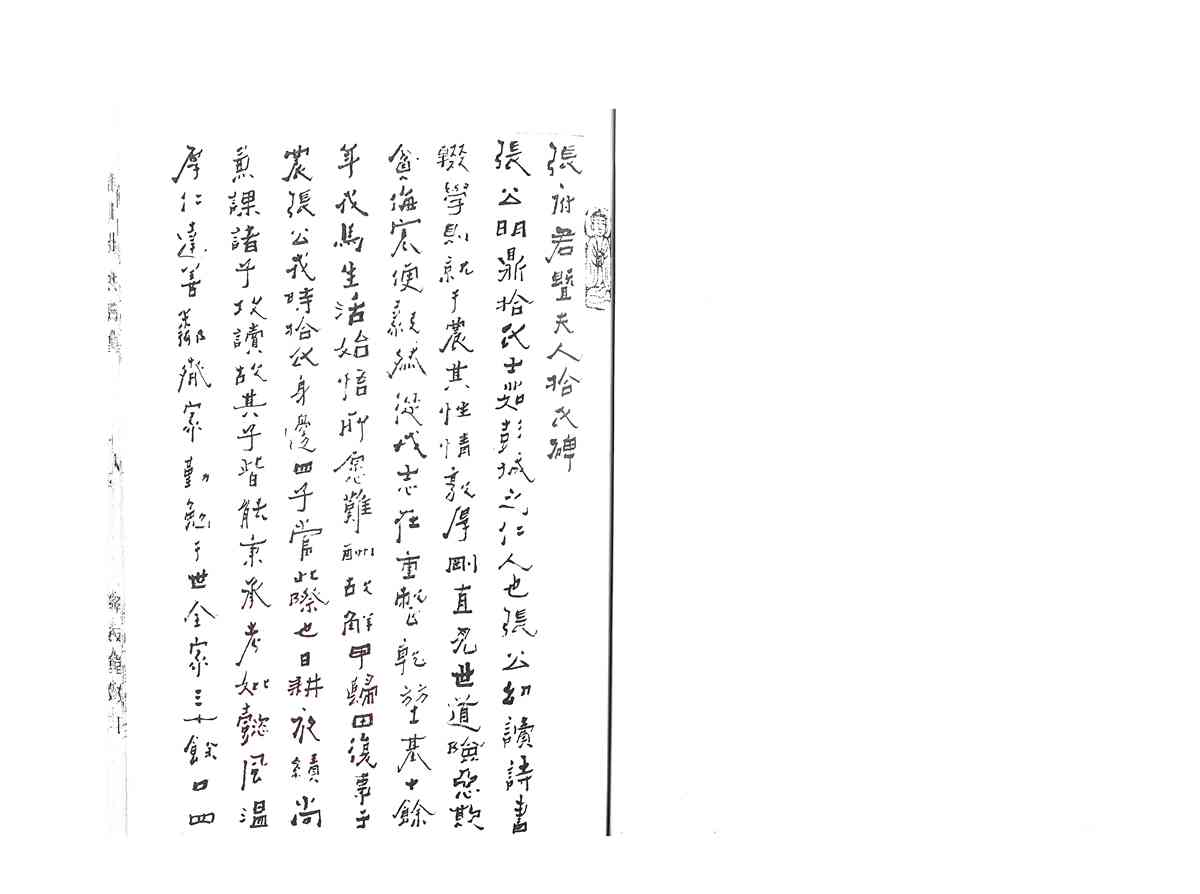 張府君暨夫人拾氏碑
張公明鼎拾氏士茹彭城之仁人也張公幼讀詩書
輟學則就于農其性情敦厚剛直見世道險惡欺
貧侮寡便毅然從戎志在重整乾坤基十餘
年戎馬生活始悟所愿難酬故解甲歸田復事于
農張公戎時拾氏身邊四子當此際也日耕夜績尚
兼課諸子攻讀故其子皆能秉承考妣懿風溫
厚仁達善鄰齊家勤勉于世全家三十餘口四